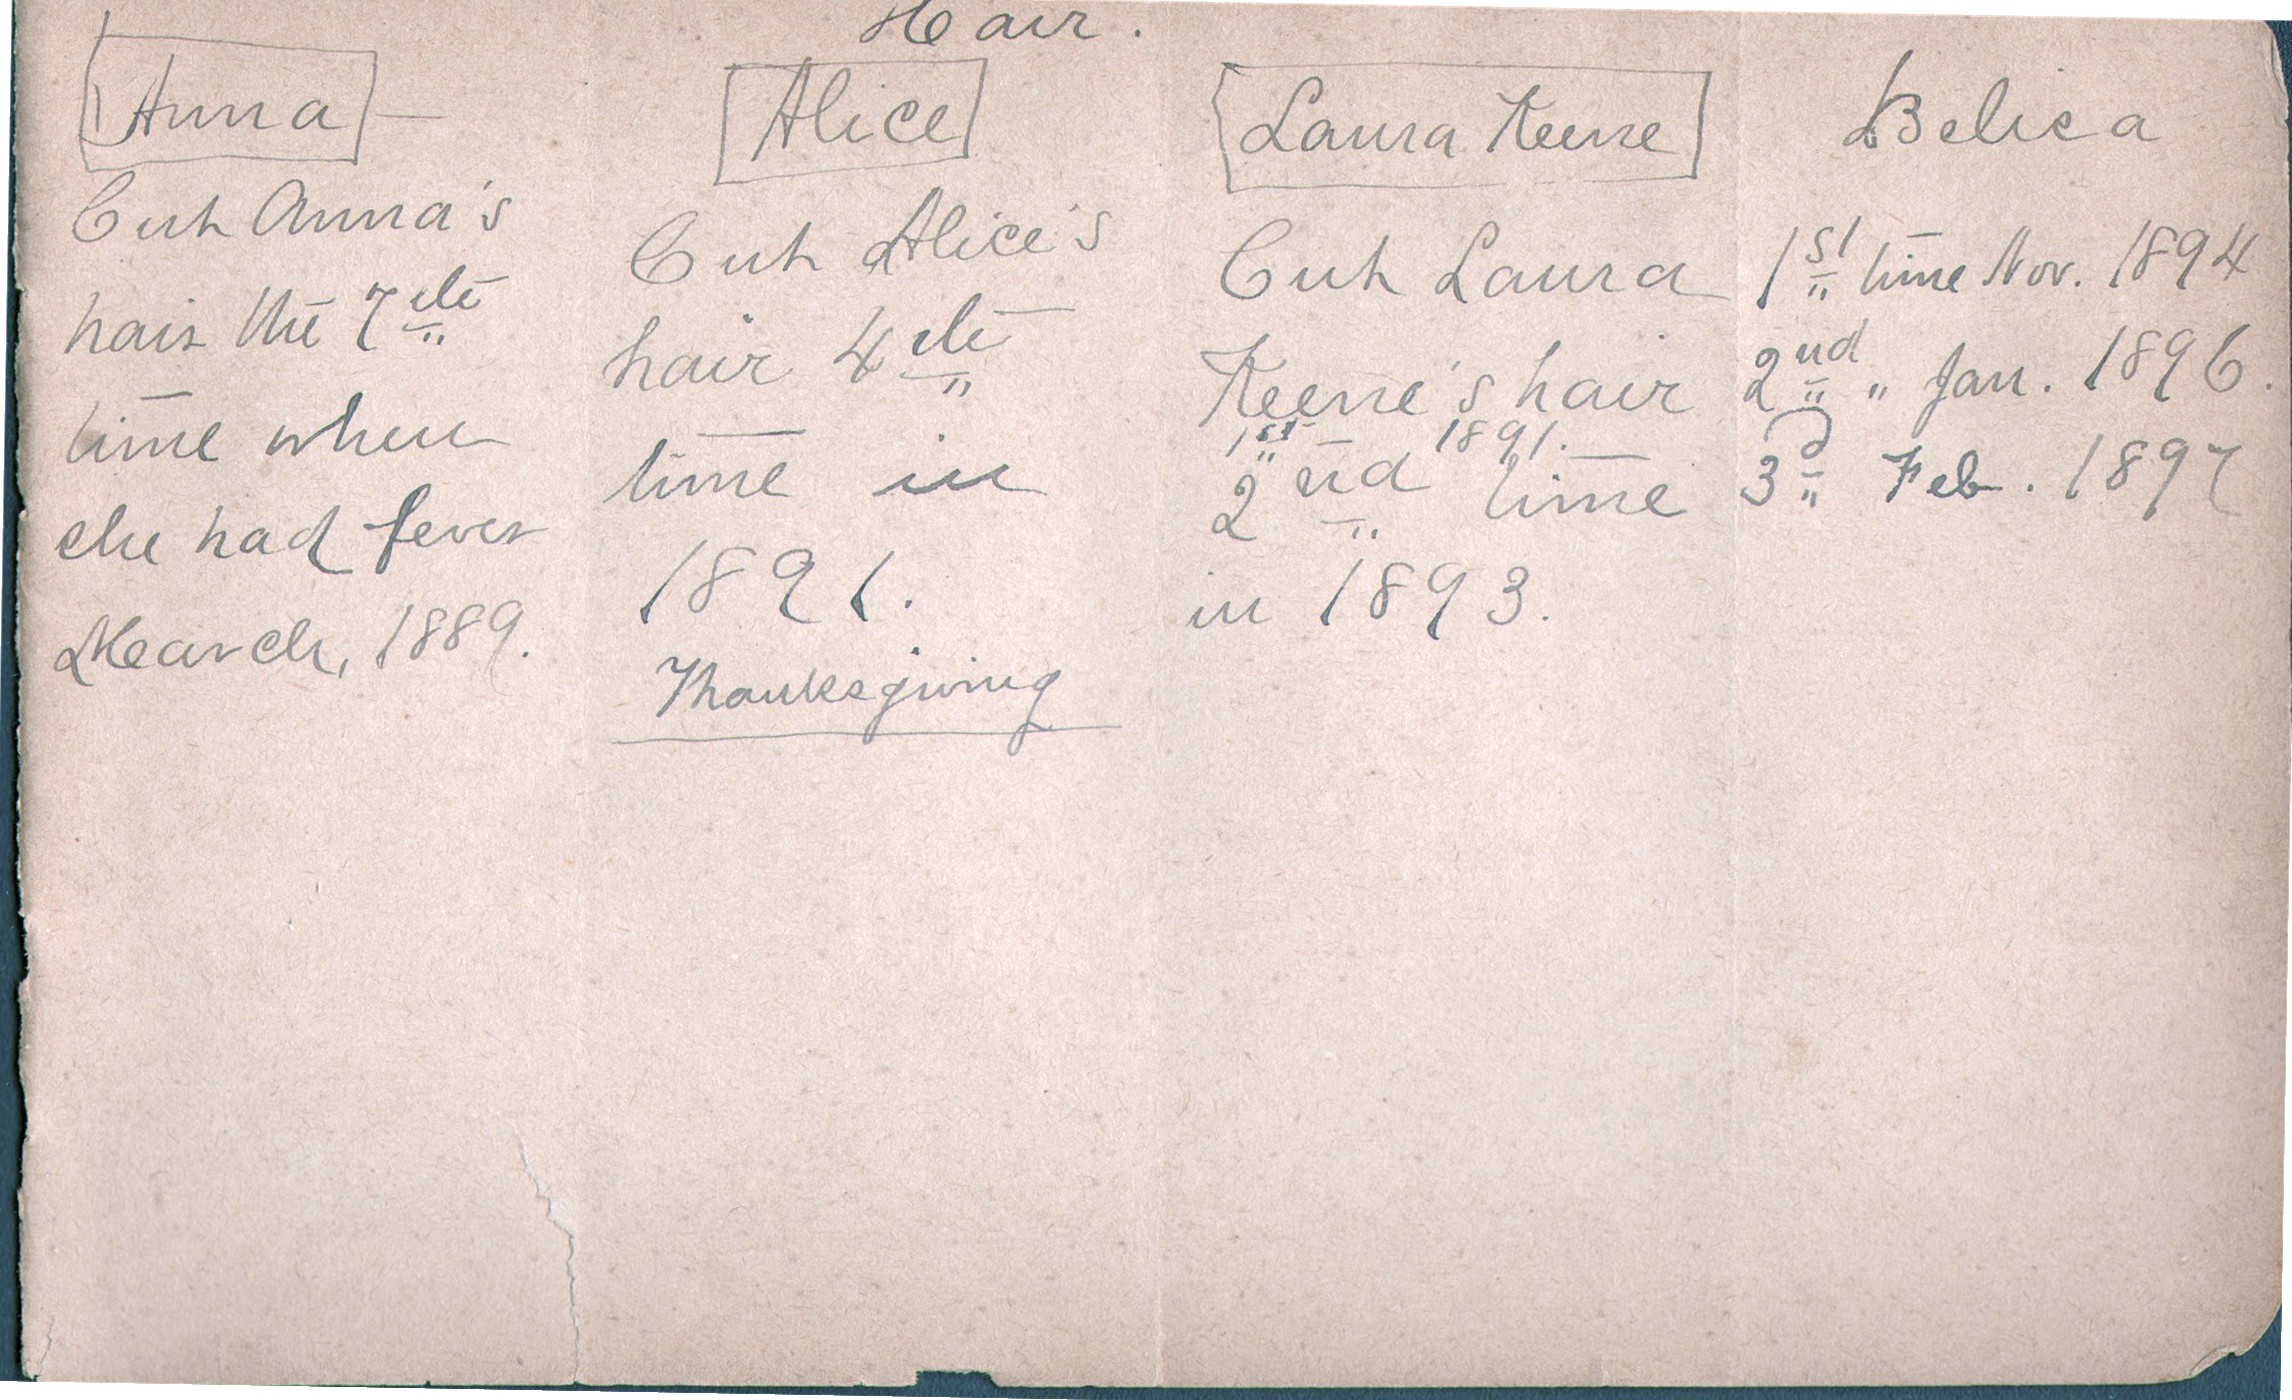 Hair.
Anna —
Cut Anna's
hair the 7th
time when
she had fever
March, 1889.
Alice
Cut Alice's
hair 4th
time in
1891.
Thanksgiving
Laura Keene
Cut Laura
Keene's hair
1st 1891.
2nd time
in 1893.
Belisa
1st time Nov. 1894
2nd " Jan. 1896.
3d Feb. 1897